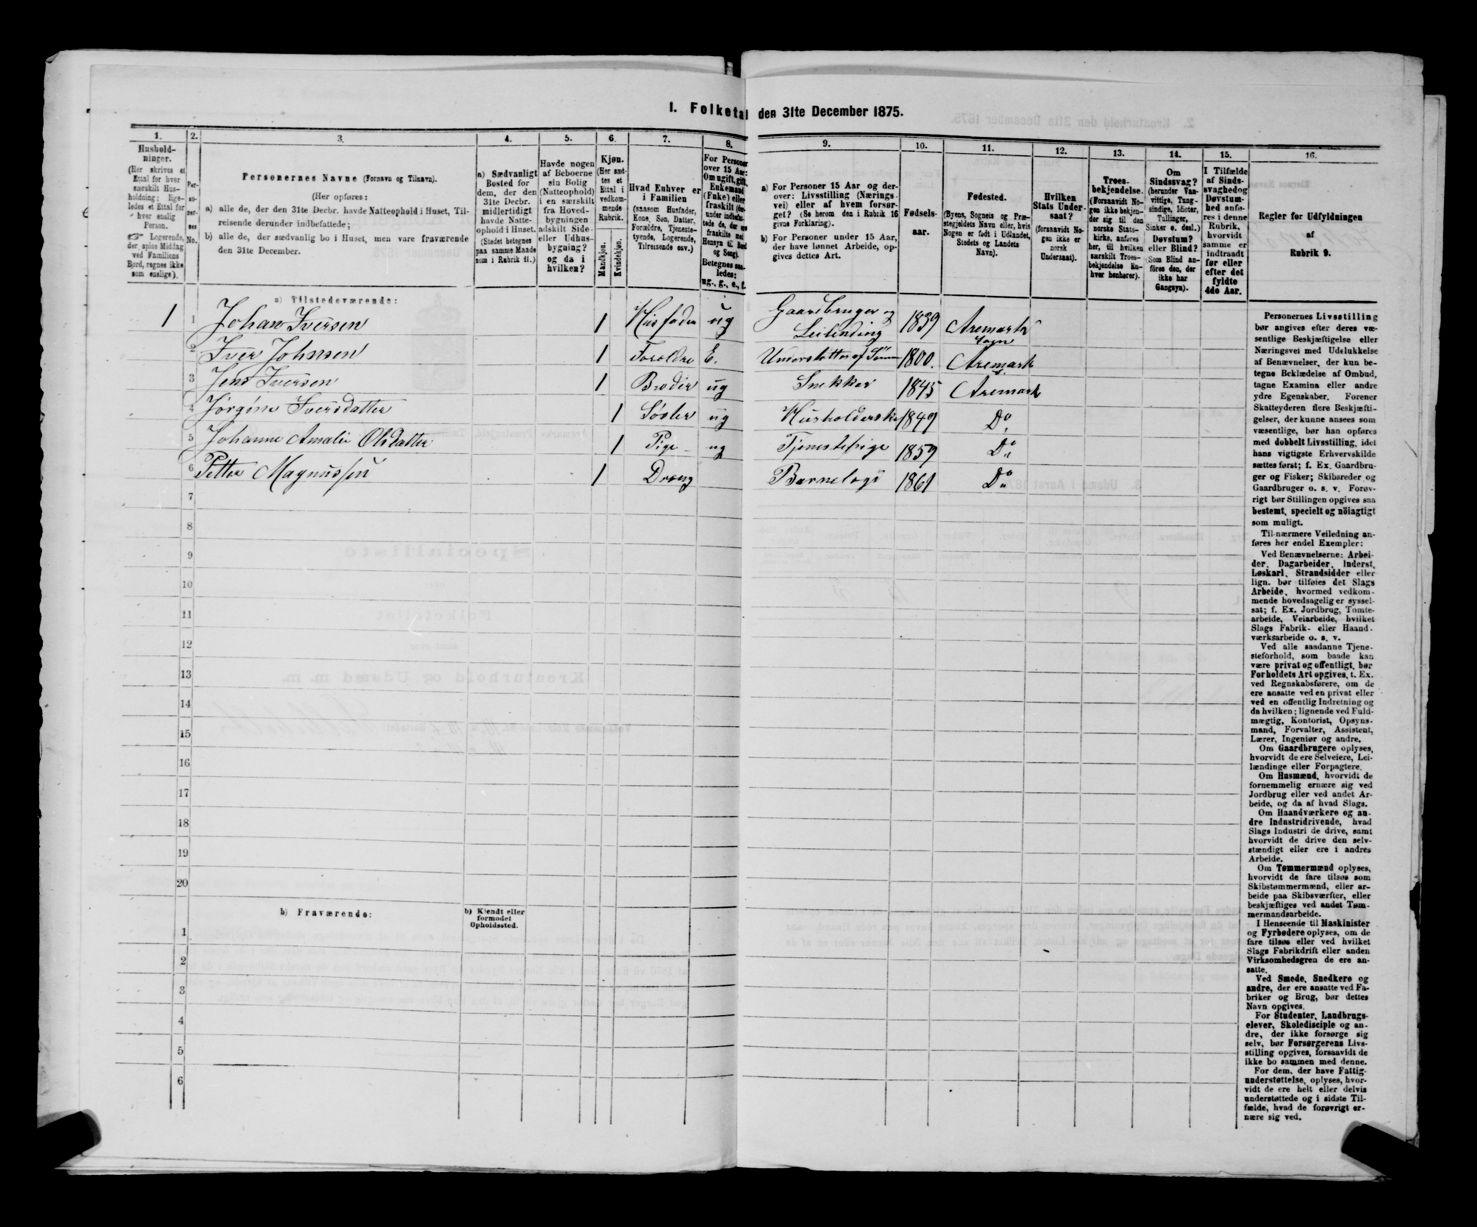 I. Folketal den 31te December 1875.
1. 2. 3. 4. 5. 6. 7. 8. 9. 10. 11. 12. 13. 14. 15. 16.
Hushold-
ninger.
(Her skrives et
Ettal for hver
særskilt Hus-
holdning; lige-
ledes et Ettal for
hver enslig
Person.
☞ Logerende,
der spise Middag
ved Familiens
Bord, regnes ikke
som enslige).
Per-
so-
ner-
nes
No.
Personernes Navne (Fornavn og Tilnavn).
(Her opføres:
a) alle de, der den 31te Decbr. havde Natteophold i Huset, Til-
reisende derunder indbefattede;
b) alle de, der sædvanlig bo i Huset, men vare fraværende
den 31te December.
a) Sædvanligt
Bosted for
dem, der den
31te Decbr.
midlertidigt
havde Natte-
ophold i Huset.
(Stedet betegnes
paa samme Maade
som i Rubrik 11.)
Havde nogen
af Beboerne
sin Bolig
(Natteophold)
i en særskilt
fra Hoved-
bygningen
adskilt Side-
eller Udhus-
bygning?
og da i
hvilken?
Kjøn.
(Her sæt-
tes et
Ettal i
vedkom-
mende
Rubrik.
Mandkjøn.
Kvindekjøn.
Hvad Enhver er
i Familien
(saasom Husfader,
Kone, Søn, Datter,
Forældre, Tjeneste-
tyende, Logerende,
Tilreisende osv.)
For Personer
over 15 Aar:
Om ugift, gift,
Enkemand
(Enke) eller
fraskilt
Betegnes saa-
ledes:
ug., g., e., f.
a) For Personer 15 Aar og der-
over: Livsstilling (Nærings-
vei) eller af hvem forsør-
get? (Se herom den i Rubrik 16
givne Forklaring).
b) For Personer under 15 Aar,
der have lønnet Arbeide, op-
gives dettes Art.
Fødsels-
aar.
Fødested.
(Byens, Sognets og Præ-
stegjeldets Navn eller, hvis
Nogen er født i Udlandet,
Stedets og Landets
Navn).
Hvilken
Stats Under-
saat?
(forsaavidt No-
gen ikke er
norsk
Undersaat).
Troes-
bekjendelse.
(Forsaavidt No-
gen ikke bekjen-
der sig til den
norske Stats-
kirke, anføres
her, til hvilken
særskilt Troes-
bekjendelse En-
hver henhører).
Om
Sindssvag?
(herunder Van-
vittige, Tung-
sindige, Idioter,
Tullinger,
Sinker o. desl.)
Døvstum?
eller Blind?
(Som Blind an-
føres den, der
ikke har
Gangsyn).
I Tilfælde
af Sinds-
svaghed og
Døvstum-
hed anfø-
res i denne
Rubrik,
hvorvidt
samme er
indtraadt
før eller
efter det
fyldte
4de Aar.
Regler for Udfyldningen
af
Rubrik 9.
a) Tilstedeværende:
1 1 Johan Iversen 1 Husfader ug Gaardbruger og Leilending 1839 Aremark Sogn
2 Iver Johnsen 1 Forældre E. Understøttes af Sønnen 1800. Aremark
3 Jens Iversen 1 Broder ug Snekker 1845 Aremark
4 Jørgine Iversdatter 1 Søster ug Husholderske 1849 Do
5 Johanne Amalie Olsdatter 1 Pige ug Tjenestepige 1859 Do
6 Petter Magnussen 1 Dreng 1861 Do
7
8
9
10
11
12
13
14
15
16
17
18
19
20
b) Fraværende:
b) Kjendt eller
formodet
Opholdssted.
1
2
3
4
5
6
Personernes Livsstilling
bør angives efter deres væ-
sentlige Beskjæftigelse eller
Næringsvei med Udelukkelse
af Benævnelser, der kun be-
tegne Beklædelse af Ombud,
tagne Examina eller andre
ydre Egenskaber. Forener
Skatteyderen flere Beskjæfti-
gelser, der kunne ansees som
væsentlige, bør han opføres
med dobbelt Livsstilling, idet
hans vigtigste Erhvervskilde
sættes først; f. Ex. Gaardbru-
ger og Fisker; Skibsreder og
Gaardbruger o. s. v. Forøv-
rigt bør Stillingen opgives saa
bestemt, specielt og nøiagtigt
som muligt.
Til nærmere Veiledning an-
føres her endel Exempler:
Ved Benævnelserne: Arbei-
der, Dagarbeider, Inderst,
Løskarl, Strandsidder eller
lign. bør tilføies det Slags
Arbeide, hvormed vedkom-
mende hovedsagelig er syssel-
sat; f. Ex. Jordbrug, Tomte-
arbeide, Veiarbeide, hvilket
Slags Fabrik- eller Haand-
værksarbeide o. s. v.
Ved alle saadanne Tjene-
steforhold, som baade kan
være privat og offentligt, bør
Forholdets Art opgives, t. Ex.
ved Regnskabsførere, om de
ere ansatte ved en privat eller
ved en offentlig Indretning og
da hvilken; lignende ved Fuld-
mægtig, Kontorist, Opsyns-
mand, Forvalter, Assistent,
Lærer, Ingeniør og andre.
Om Gaardbrugere oplyses,
hvorvidt de ere Selveiere, Lei-
lændinge eller Forpagtere.
Om Husmænd, hvorvidt de
fornemmelig ernære sig ved
Jordbrug eller ved andet Ar-
beide, og da af hvad Slags.
Om Haandværkere og an-
dre Industridrivende, hvad
Slags Industri de drive, samt
hvorvidt de drive den selv-
stændigt eller ere i andres
Arbeide.
Om Tømmermænd oplyses,
hvorvidt de fare tilsøs som
Skibstømmermænd, eller ar-
beide paa Skibsværfter, eller
beskjæftiges ved andet Tøm-
mermandsarbeide.
I Henseende til Maskinister
og Fyrbødere oplyses, om de
fare tilsøs eller ved hvilket
Slags Fabrikdrift eller anden
Virksomhedsgren de ere an-
satte.
Ved Smede, Snedkere og
andre, der ere ansatte ved Fa-
briker og Brug, bør dettes
Navn opgives.
For Studenter, Landbrugs-
elever, Skoledisciple og an-
dre, der ikke forsørge sig
selv, bør Forsørgerens Livs-
stilling opgives, forsaavidt de
ikke bo sammen med denne.
For dem, der have Fattig-
understøttelse, oplyses, hvor-
vidt de ere helt eller delvis
understøttede og i sidste Til-
fælde, hvad de forøvrigt er-
nære sig ved.